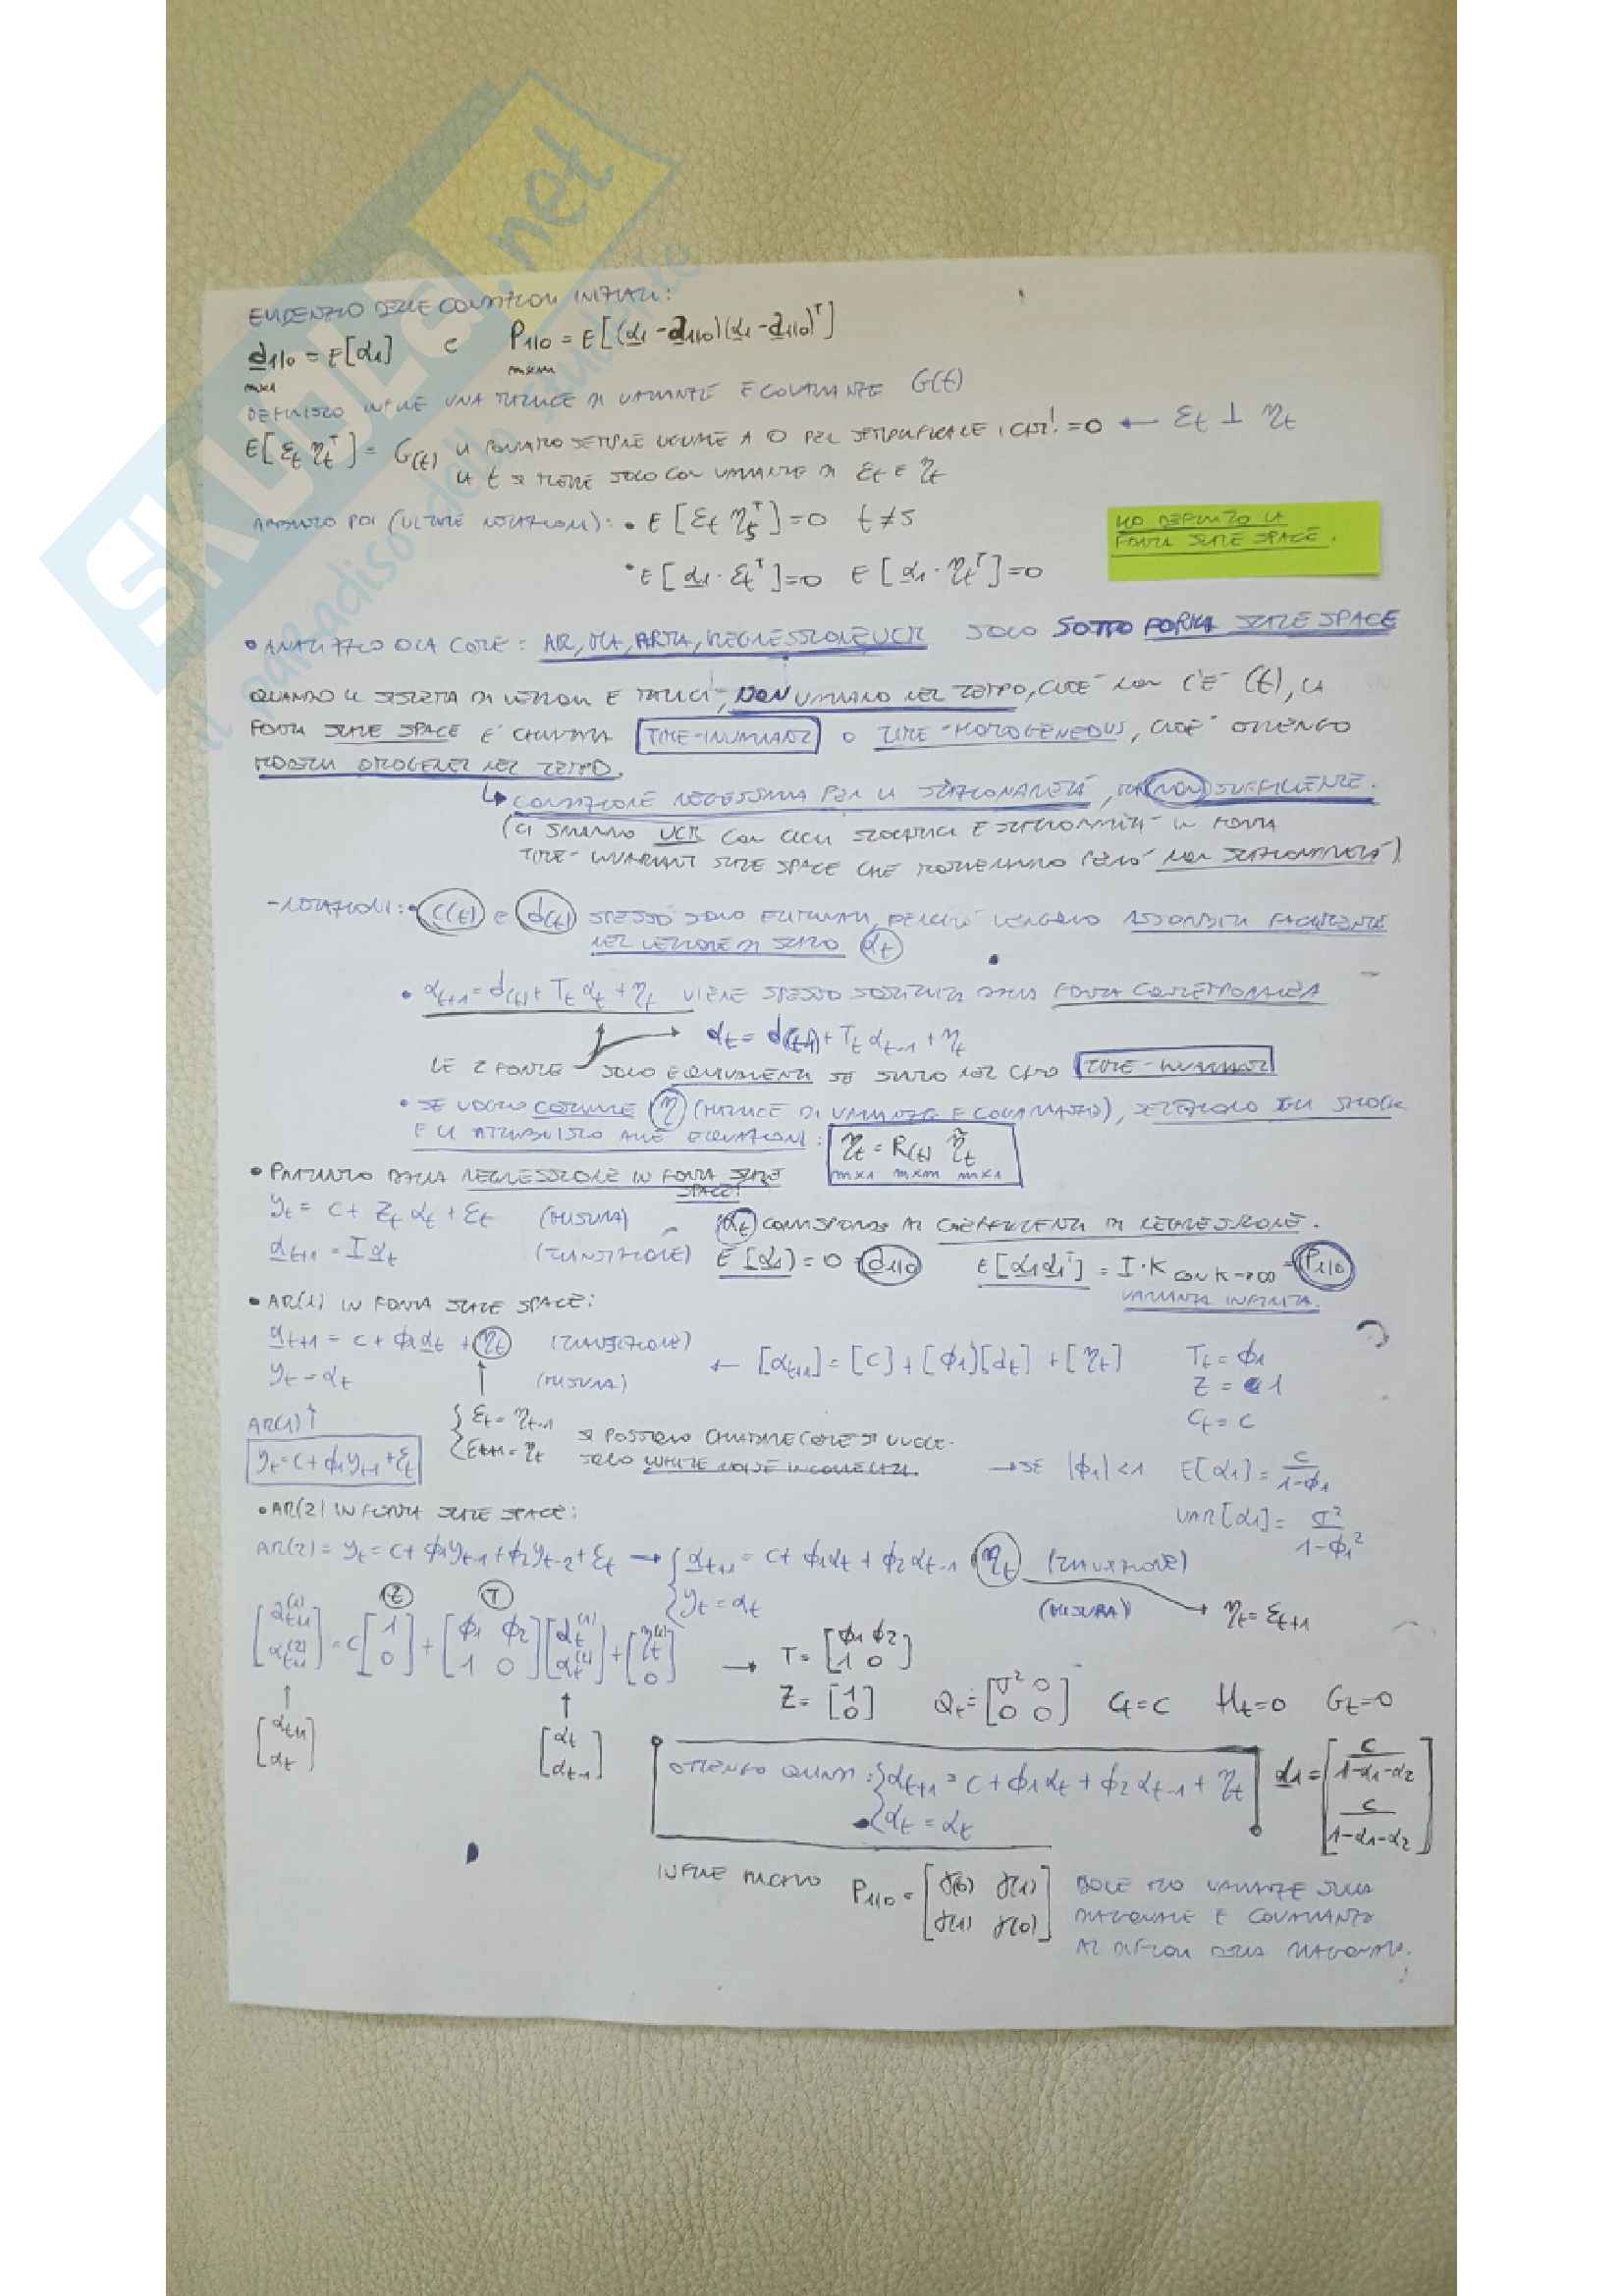 SKUOLA.net
il paradiso dello studente
EVIDENZIO DELLE CONDIZIONI INIZIALI:
a1|0 = E[α1] e P1|0 = E[(α1 - a1|0)(α1 - a1|0)^T]
mx1 mxm
DEFINISCO INFINE UNA MATRICE DI VARIANZE E COVARIANZE G(t)
E[εt ηt^T] = G(t) SEMPRE UGUALE A 0 PER SEMPLIFICARE = 0 ← εt ⊥ ηt
SOLO CON VARIANZE DI εt E ηt
POI (ULTIME NOTAZIONI): • E[εt ηs^T] = 0 t ≠ s
• E[α1 · εt^T] = 0 E[α1 · ηt^T] = 0
HO DEFINITO LA
FORMA STATE SPACE.
• ANALIZZO ORA COME: AR, MA, ARMA, REGRESSIONE, UCM SOLO SOTTO FORMA STATE SPACE
QUANDO IL SISTEMA DI VETTORI E MATRICI, NON VARIANO NEL TEMPO, CIOÈ NON C'È (t), LA
FORMA STATE SPACE E' CHIAMATA TIME-INVARIANT O TIME-HOMOGENEOUS, CIOÈ OTTENGO
MODELLI OMOGENEI NEL TEMPO.
↳ CONDIZIONE NECESSARIA PER LA STAZIONARIETÀ, MA NON SUFFICIENTE.
(CI SARANNO UCM CON CICLI STOCASTICI E STAGIONALITÀ IN FORMA
TIME-INVARIANT STATE SPACE CHE MOSTRERANNO PERÒ NON STAZIONARIETÀ)
- NOTAZIONI: • c(t) e d(t) SPESSO SONO ELIMINATI, PERCHÉ VENGONO ASSORBITI FACILMENTE
NEL VETTORE DI STATO αt
• αt+1 = d(t) + Tt αt + ηt VIENE SPESSO SOSTITUITA DALLA FORMA CONTEMPORANEA
αt = d(t-1) + Tt αt-1 + ηt
LE 2 FORME SONO EQUIVALENTI SE SIAMO NEL CASO TIME-INVARIANT
• SE VOGLIO COSTRUIRE η (MATRICE DI VARIANZE E COVARIANZE), SELEZIONO GLI SHOCK
E LI ATTRIBUISCO ALLE EQUAZIONI: ηt = R(t) η̃t
mx1 mxm mx1
• PARTIAMO DALLA REGRESSIONE IN FORMA STATE
SPACE:
yt = c + Zt αt + εt (MISURA) αt CORRISPONDE AI COEFFICIENTI DI REGRESSIONE.
αt+1 = I αt (TRANSIZIONE) E[α1] = 0 = a1|0 E[α1 α1^T] = I·K CON K→∞ = P1|0
VARIANZA INFINITA.
• AR(1) IN FORMA STATE SPACE:
αt+1 = c + φ1 αt + ηt (TRANSIZIONE) ← [αt+1] = [c] + [φ1][αt] + [ηt] Tt = φ1
yt = αt (MISURA) Z = 1
Ct = c
AR(1) ↑ { εt = ηt-1 SI POSSONO CHIAMARE COME SI VUOLE.
yt = c + φ1 yt-1 + εt { εt+1 = ηt SONO WHITE NOISE INCORRELATI. → SE |φ1| < 1 E[α1] = c / 1-φ1
VAR[α1] = σ² / 1-φ1²
• AR(2) IN FORMA STATE SPACE:
AR(2) = yt = c + φ1 yt-1 + φ2 yt-2 + εt → { αt+1 = c + φ1 αt + φ2 αt-1 ηt (TRANSIZIONE)
{ yt = αt (MISURA) → ηt = εt+1
Z T
[αt+1^(1) αt+1^(2)] = c [1 0] + [φ1 φ2 1 0] [αt^(1) αt^(2)] + [ηt^(1) 0] → T = [φ1 φ2 1 0]
Z = [1 0] Qt = [σ² 0 0 0] Ct = c Ht = 0 Gt = 0
[αt+1 αt] [αt αt-1]
OTTENGO QUINDI: { αt+1 = c + φ1 αt + φ2 αt-1 + ηt α1 = [c / 1-α1-α2
{ αt = αt c / 1-α1-α2]
INFINE P1|0 = [γ(0) γ(1) γ(1) γ(0)] DOVE HO VARIANZE SULLA
DIAGONALE E COVARIANZE
AL DI FUORI DELLA DIAGONALE.